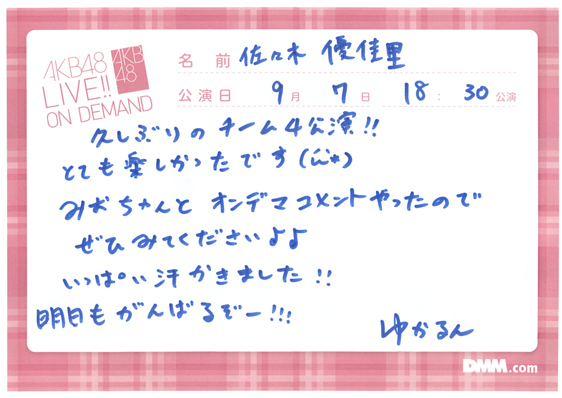 AKB48
LIVE!!
ON DEMAND
AKB
48
名前 佐々木 優佳里
公演日 9月 7日 18:30公演
久しぶりのチーム4公演!!
とても楽しかったです(¨̮*)
みおちゃんと オンデマコメントやったので
ぜひみてくださいよよ
いっぱい汗かきました!!
明日もがんばるぞー!!!
ゆかるん
DMM.com